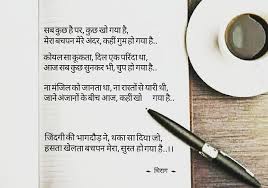 सब कुछ है पर, कुछ खो गया है,
मेरा बचपन मेरे अंदर, कहीं गुम हो गया है..
कोयल सा कूकता, दिल एक परिंदा था,
आज सब कुछ सुनकर भी, चुप हो गया है..
ना मंजिल को जानता था, ना रास्तों से यारी थी,
जाने अंजानों के बीच आज, कहीं खो गया है..
जिंदगी की भागदौड़ ने, थका सा दिया जो,
हसता खेलता बचपन मेरा, सुस्त हो गया है..।।